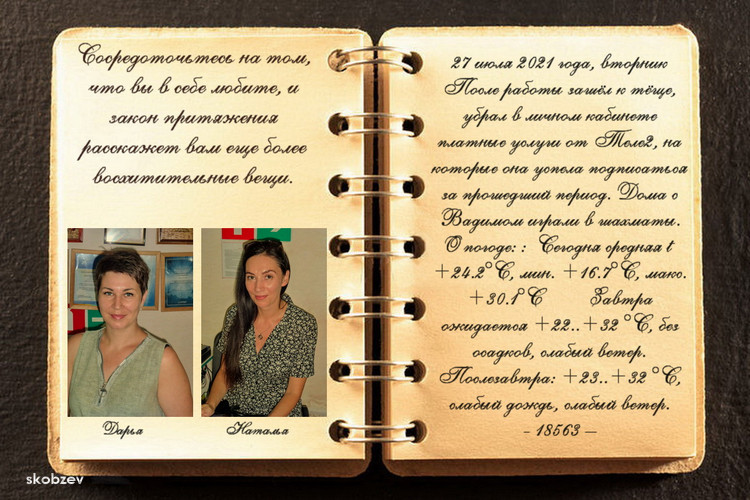 Сосредоточьтесь на том,
что вы в себе любите, и
закон притяжения
расскажет вам еще более
восхитительные вещи.
Дарья
Наталья
27 июля 2021 года, вторник
После работы зашёл к тёще,
убрал в личном кабинете
платные услуги от Теле2, на
которые она успела подписаться
за прошедший период. Дома с
Вадимом играли в шахматы.
О погоде: : Сегодня средняя t
+24.2°C, мин. +16.7°C, макс.
+30.1°C Завтра
ожидается +22..+32 °C, без
осадков, слабый ветер.
Послезавтра: +23..+32 °C,
слабый дождь, слабый ветер.
- 18563 —
skobzev